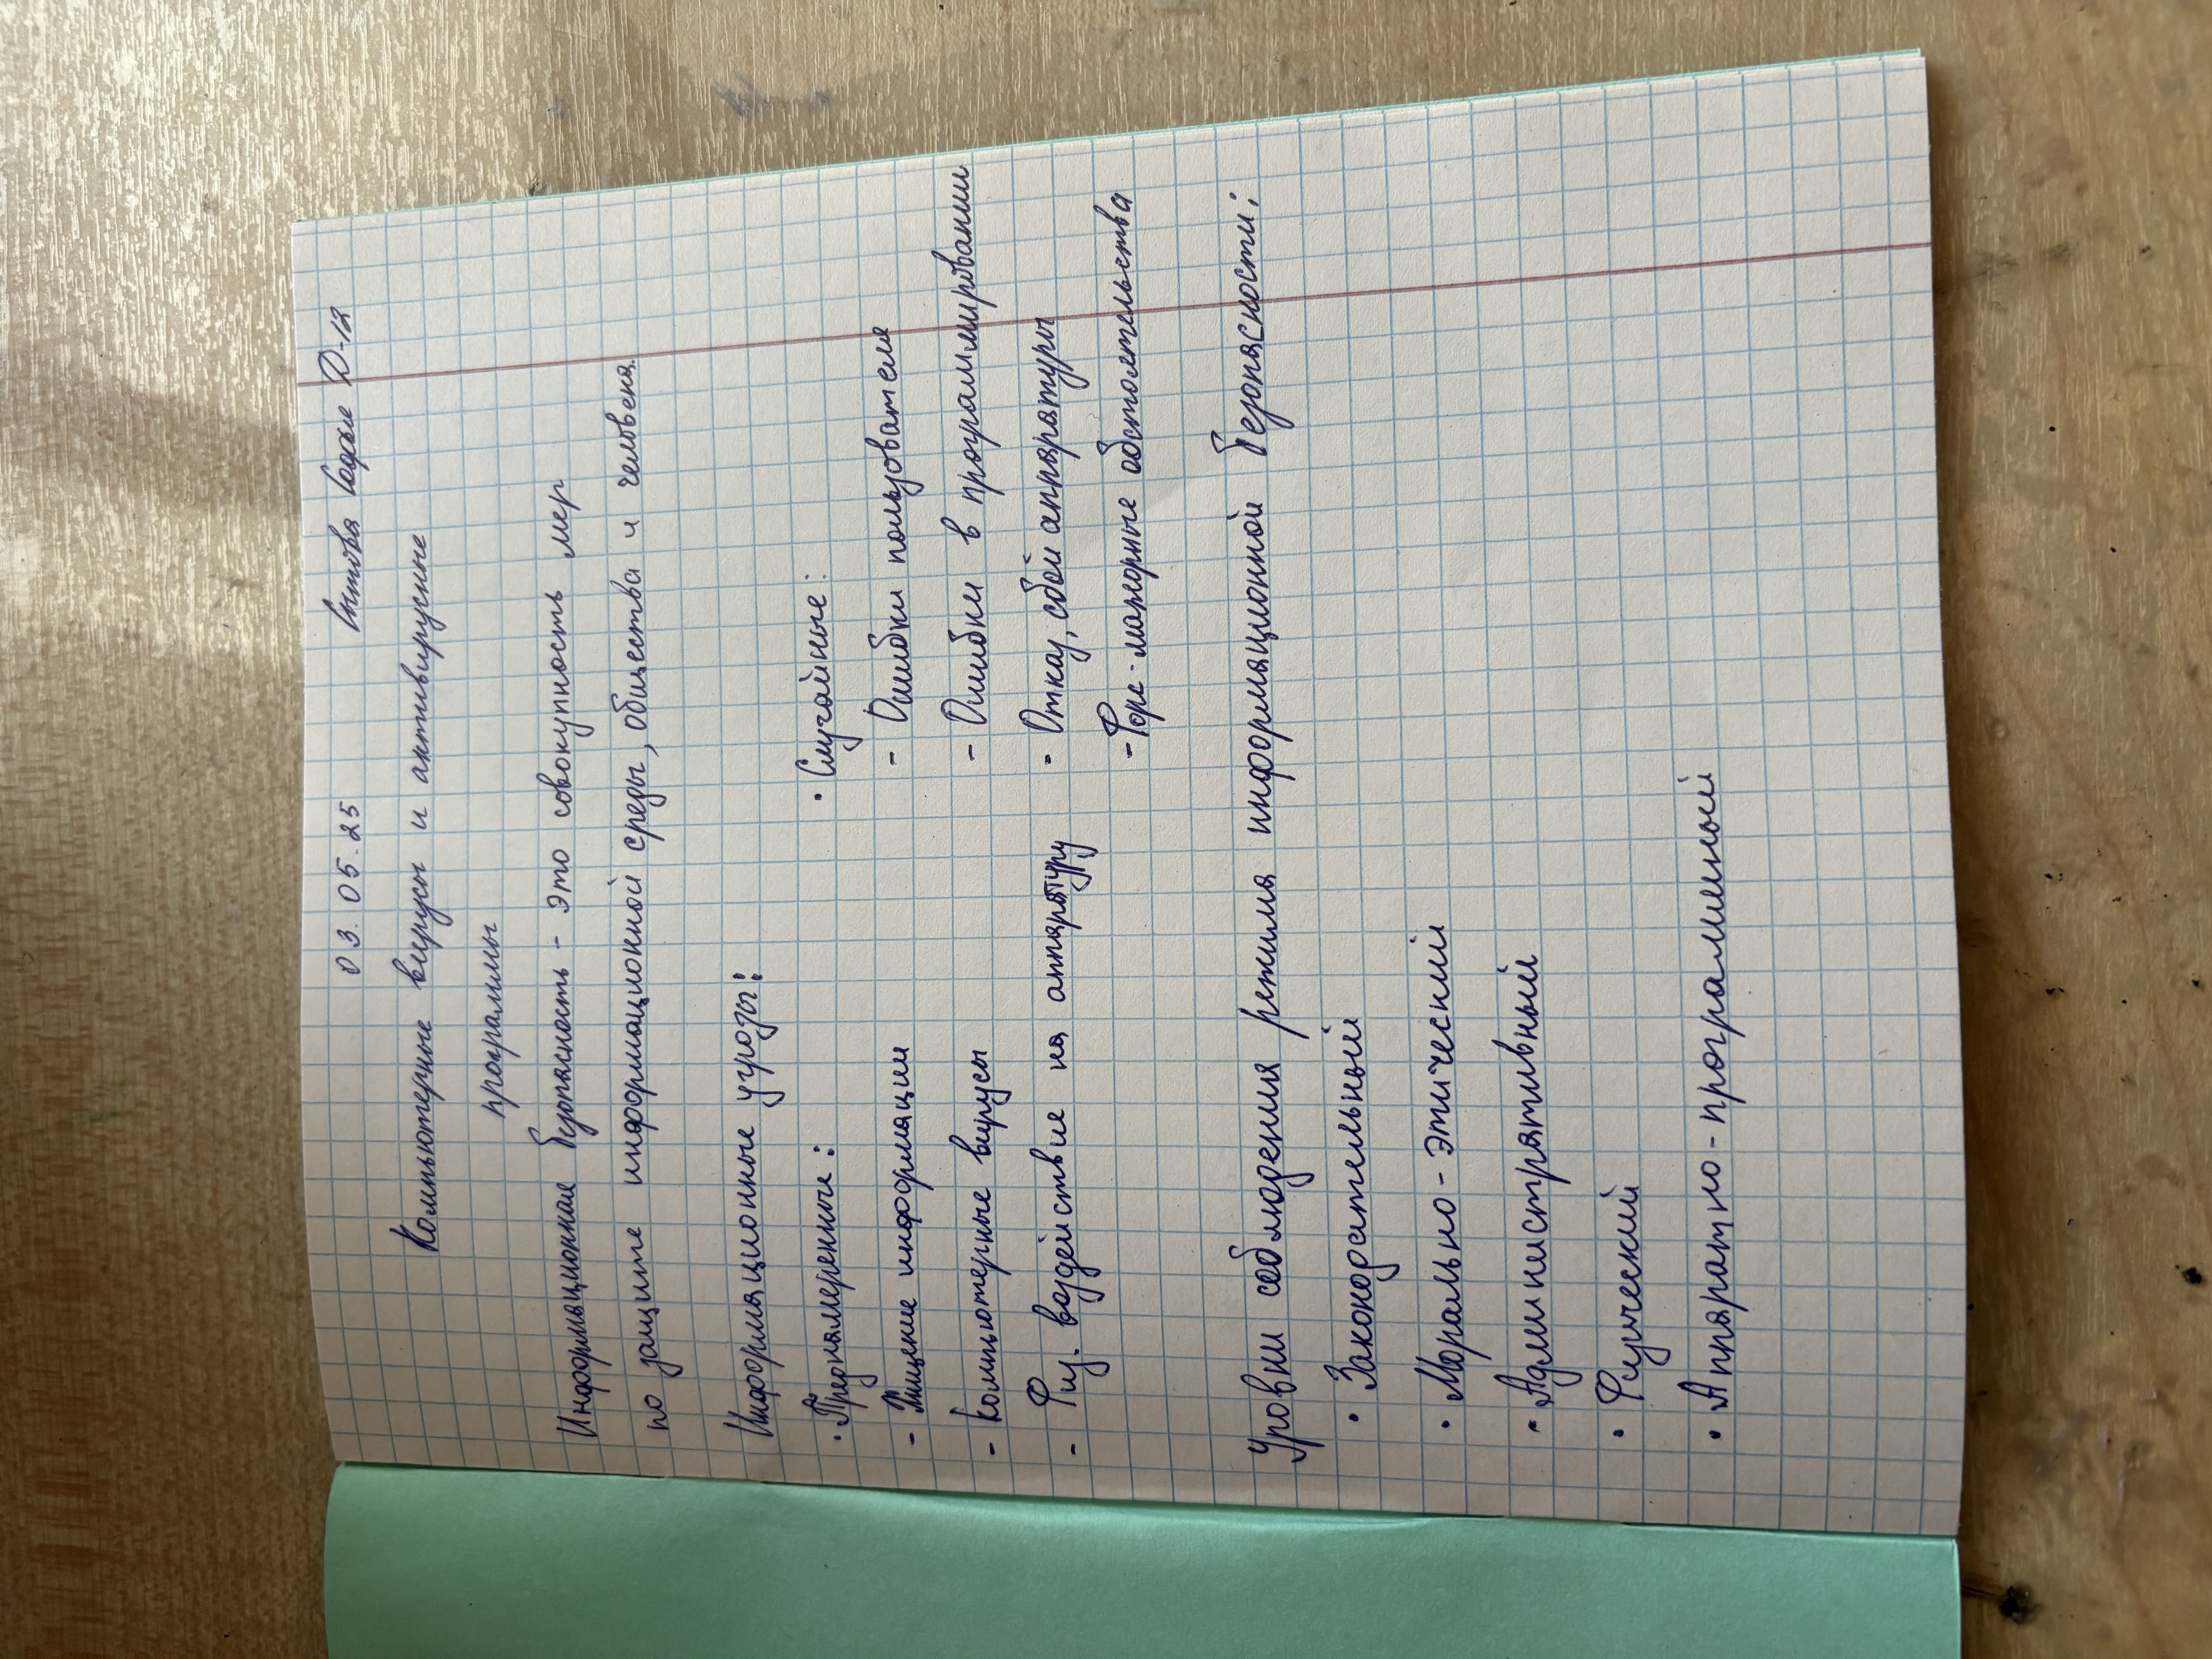 03.05.25 Д-12
Компьютерные вирусы и антивирусные
программы
Информационная безопасность - это совокупность мер
по защите информационной среды, общества и человека.
Информационные угрозы:
• Преднамеренные: • Случайные:
- Хищение информации - Ошибки пользователя
- Компьютерные вирусы - Ошибки в программировании
- Физ. воздействие на аппаратуру - Отказ, сбой аппаратуры
- Форс-мажорные обстоятельства
Уровни соблюдения режима информационной безопасности:
• Законодательный
• Морально-этический
• Административный
• Физический
• Аппаратно-программный